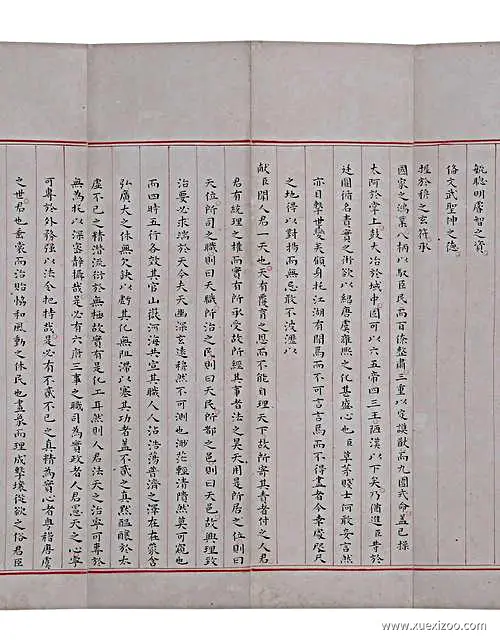 毓聰明睿智之資
俻文武聖神之德
握於穆之玄符承
國家之鴻業八柄以馭臣民而百僚整肅三重以定謨猷而九圍式命蓋已操
太阿於掌上鼓大冶於域中固可以六五帝四三王陋漢以下矣乃猶進臣等於
廷圖循名責實之術欲以紹唐虞雍熙之化甚盛心也臣草茅賤士何敢妄言然
亦目擊世變矣顧身托江湖有聞焉而不可言言焉而不得盡者今幸處咫尺
之地得以對揚而無忌敢不披瀝以
獻臣聞人君一天也天有覆育之恩而不能自理天下故所寄其責者付之人君
君有統理之權而實有所承受故所經其事者法之昊天用是所居之位則曰
天位所司之職則曰天職所治之民則曰天民所都之邑則曰天邑故興理致
治要必求端於天今夫天幽深玄遠穆然不可測也渺茫輕清隤然莫可窺也
而四時五行各效其官山嶽河海共宣其職人人沾浩蕩普濟之澤在在蒙含
弘廣大之休無欠缺以虧其化無阻滯以塞其功者蓋不貳之真默醞釀於太
虛不已之精潛流衍於無極故實有是化工耳然則人君法天之治寧可專於
無為托以深密靜攝哉是必有六府三事之職司為實政者人君憲天之心寧
可專於外務強以法令把持哉是必有不貳不已之真精為實心者粵稽唐虞
之世君也垂裳而治貽協和風動之休民也畫象而理成擊壤從欲之俗君臣
www.xuexizoo.com